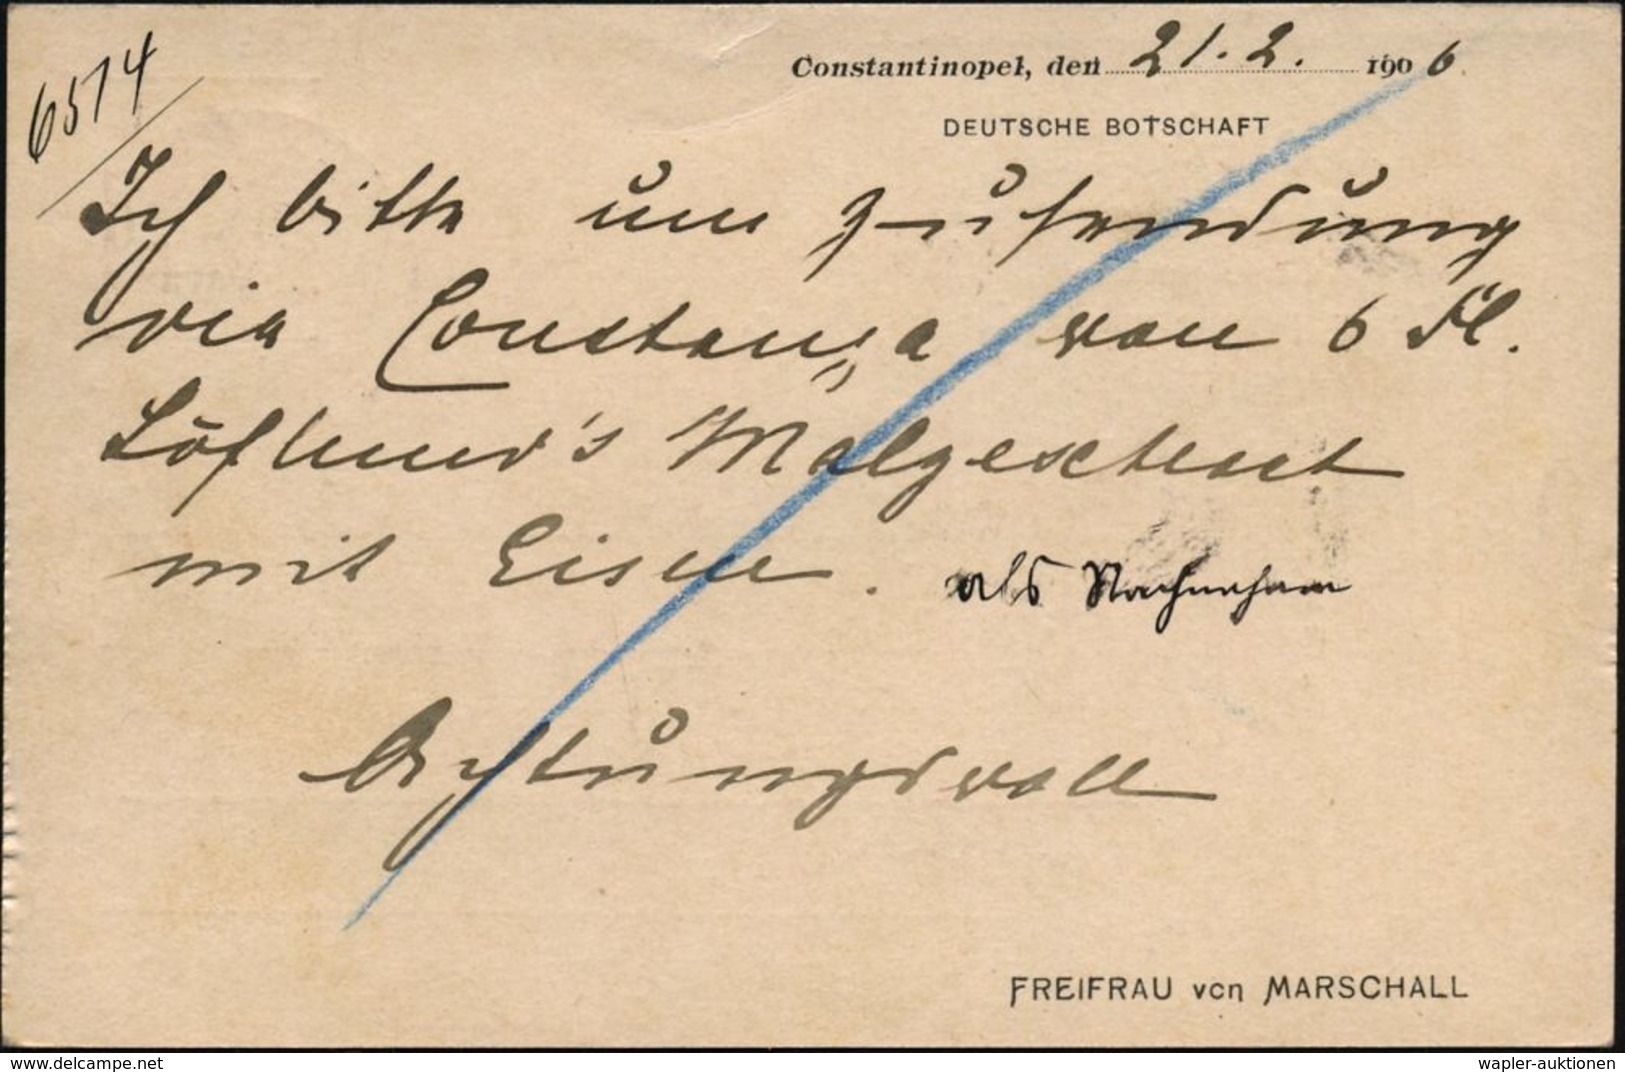 6574
Constantinopel, den 21. 2. 1906
DEUTSCHE BOTSCHAFT
Ich bitte um Zusendung
via Constanza von 6 Fl.
Löflund's Malgextract
mit Eisen. als Nachnahme
Achtungsvoll
FREIFRAU von MARSCHALL
delcampe.net
wapler-auktionen